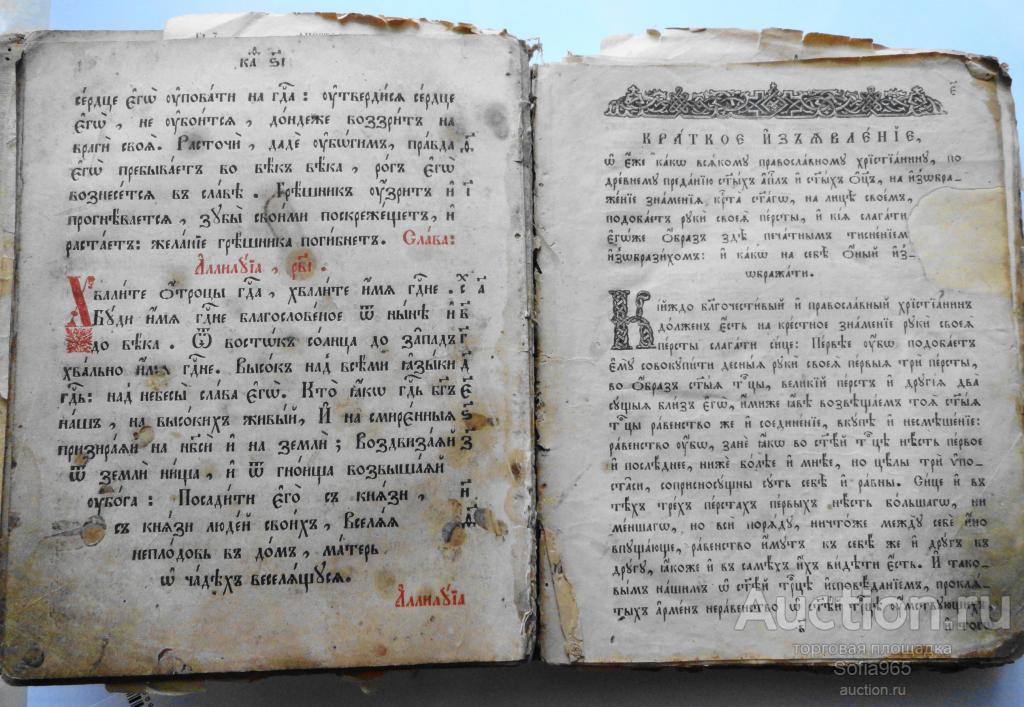 ка ѕ҃і
сердце є҆гѡ̀ ѹ҆повати на гд҇а : ѹ҆твердисѧ сердце
є҆гѡ̀ , не ѹ҆боитсѧ , до́ндеже воззри́тъ на
врагѝ своѧ̀ . Расточѝ , дадѐ ѹ҆бѡ́гимъ , пра́вда
є҆гѡ̀ пребыва́етъ во вѣ́къ вѣ́ка , ро́гъ є҆гѡ̀
вознесе́тсѧ въ сла́вѣ . Грѣ́шникъ ѹ҆́зритъ и҆
прогнѣ́ваетсѧ , зѹбы̀ свои́ми поскреже́щетъ , и҆
раста́етъ : жела́нїе грѣ́шника поги́бнетъ . Сла́ва :
А҆ллилѹ́їа , рв҃і .
Хвали́те о҆́троцы гд҇а , хвали́те и҆́мѧ гд҇не .
Бѹ́ди и҆́мѧ гд҇не благослове́ное ѿ ны́нѣ и҆
до вѣ́ка . Ѿ восто́къ со́лнца до за́падъ
хва́льно и҆́мѧ гд҇не . Высо́къ над всѣ́ми ꙗ҆зы́ки
гд҇ь : над небесы̀ сла́ва є҆гѡ̀ . Кто̀ ꙗ҆́кѡ гд҇ь бг҃ъ
на́шъ , на высо́кихъ живы́й , И҆ на смире́нныѧ
призира́ѧй на нб҃сѝ и҆ на землѝ ; Воздвиза́ѧй
ѿ землѝ ни́ща , и҆ ѿ гно́ища возвыша́ѧй
ѹ҆бо́га : Посади́ти є҆го̀ съ кнѧ́зи ,
съ кнѧ́зи люде́й свои́хъ , Вселѧ́ѧ
непло́довь въ до́мъ , ма́терь
ѡ҆ ча́дѣхъ веселѧ́щѹсѧ .
А҆ллилѹ́їа
є҃
КРА́ТКОЕ И҆ЗЪѦВЛЕ́НЇЕ ,
ѡ҆ є҆́же ка́кѡ всѧ́комѹ правосла́вномѹ хрїстїа́нинѹ , по
дре́внемѹ преда́нїю ст҃ы́хъ а҆пл҇ъ и҆ ст҃ы́хъ ѻ҆ц҃ъ , на и҆зѡбра-
же́нїе зна́менїѧ крт҇а̀ ст҃а́гѡ , на лицѣ̀ свое́мъ ,
подоба́етъ рѹкѝ своеѧ̀ пе́рсты , и҆ кі́ѧ слага́ти
є҆гѡ́же ѻ҆́бразъ здѣ̀ печа́тнымъ тисне́нїемъ
и҆зѡбрази́хомъ : и҆ ка́кѡ на себѣ̀ ѻ҆́ный и҆з-
ѡбража́ти .
Кі́йждо благочести́вый и҆ правосла́вный хрїстїа́нин
до́лженъ є҆́сть на кре́стное зна́менїе рѹкѝ своеѧ̀
пе́рсты слага́ти си́це : Пе́рвѣе ѹ҆́бѡ подоба́етъ
є҆мѹ̀ совокѹпи́ти десны́ѧ рѹкѝ своеѧ̀ пе́рвыѧ трѝ пе́рсты ,
во ѻ҆́бразъ ст҃ы́ѧ трⷪ҇цы , вели́кїй пе́рстъ и҆ дрѹгі́ѧ два
сѹ́щыѧ бли́зъ є҆гѡ̀ , и҆ми́же ꙗ҆́вѣ возвѣща́емъ тоѧ̀ ст҃ы́ѧ
трⷪ҇цы ра́венство же и҆ соедине́нїе , вкѹ́пѣ и҆ несмѣше́нїе :
ра́венство ѹ҆́бѡ , занѐ ꙗ҆́кѡ во ст҃ѣ́й трⷪ҇цѣ нѣ́сть пе́рвое
и҆ послѣ́днее , нижѐ бо́лѣе и҆ мнѣ́е , но цѣ́лы трѝ ѵ҆по-
ста́си , соприсносѹ́щны сѹ́ть себѣ̀ и҆ ра́вны . Си́це и҆ в
тѣ́хъ тре́хъ перста́хъ пе́рвыхъ нѣ́сть бо́льшагѡ , ни
ме́ньшагѡ , но всѝ порѧ́дѹ , ничто́же междѹ̀ себѐ и҆́но
впѹща́юще , ра́венство и҆́мѹтъ къ себѣ́ же и҆ дрѹ́гъ въ
дрѹ́гѹ , ꙗ҆́коже и҆ въ самѣ́хъ и҆́хъ ви́дѣти є҆́сть . И҆ тако-
вы́мъ на́шимъ ѡ҆ ст҃ѣ́й трⷪ҇цѣ и҆сповѣ́данїемъ , проклѧ-
ты́хъ а҆рме́нъ нера́венство ѡ҆ ст҃ѣ́й трⷪ҇цѣ ѹ҆́мствѹющихъ ,
и҆ того̀
Auction.ru
торговая площадка
Sofia965
auction.ru